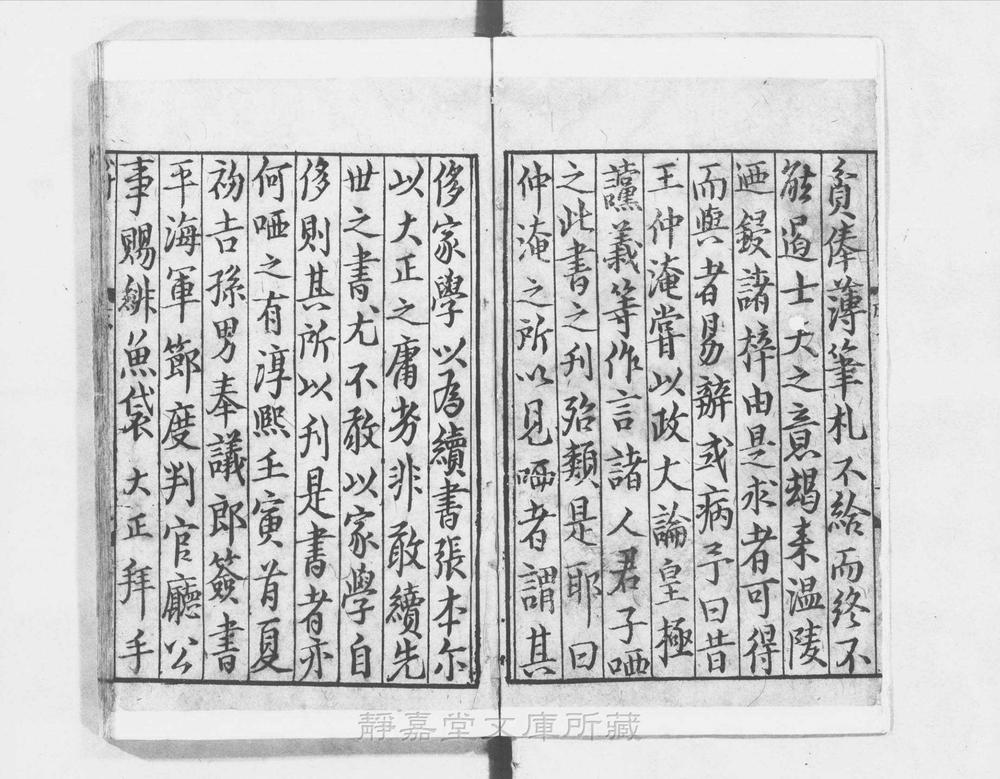 貧俸薄筆札不給而終不
能遏士夫之意朅来温陵
廼鋟諸梓由是求者可得
而與者易辭或病予曰昔
王仲淹甞以政大論皇極
讜義等作言諸人君子哂
之此書之刋殆類是耶曰
仲淹之所以見哂者謂其
侈家學以為續書張本尔
以大正之庸劣非敢續先
世之書尤不敢以家學自
侈則其所以刋是書者亦
何哂之有淳熙壬寅首夏
初吉孫男奉議郎簽書
平海軍節度判官廳公
事賜緋魚袋 大正拜手
靜嘉堂文庫所藏